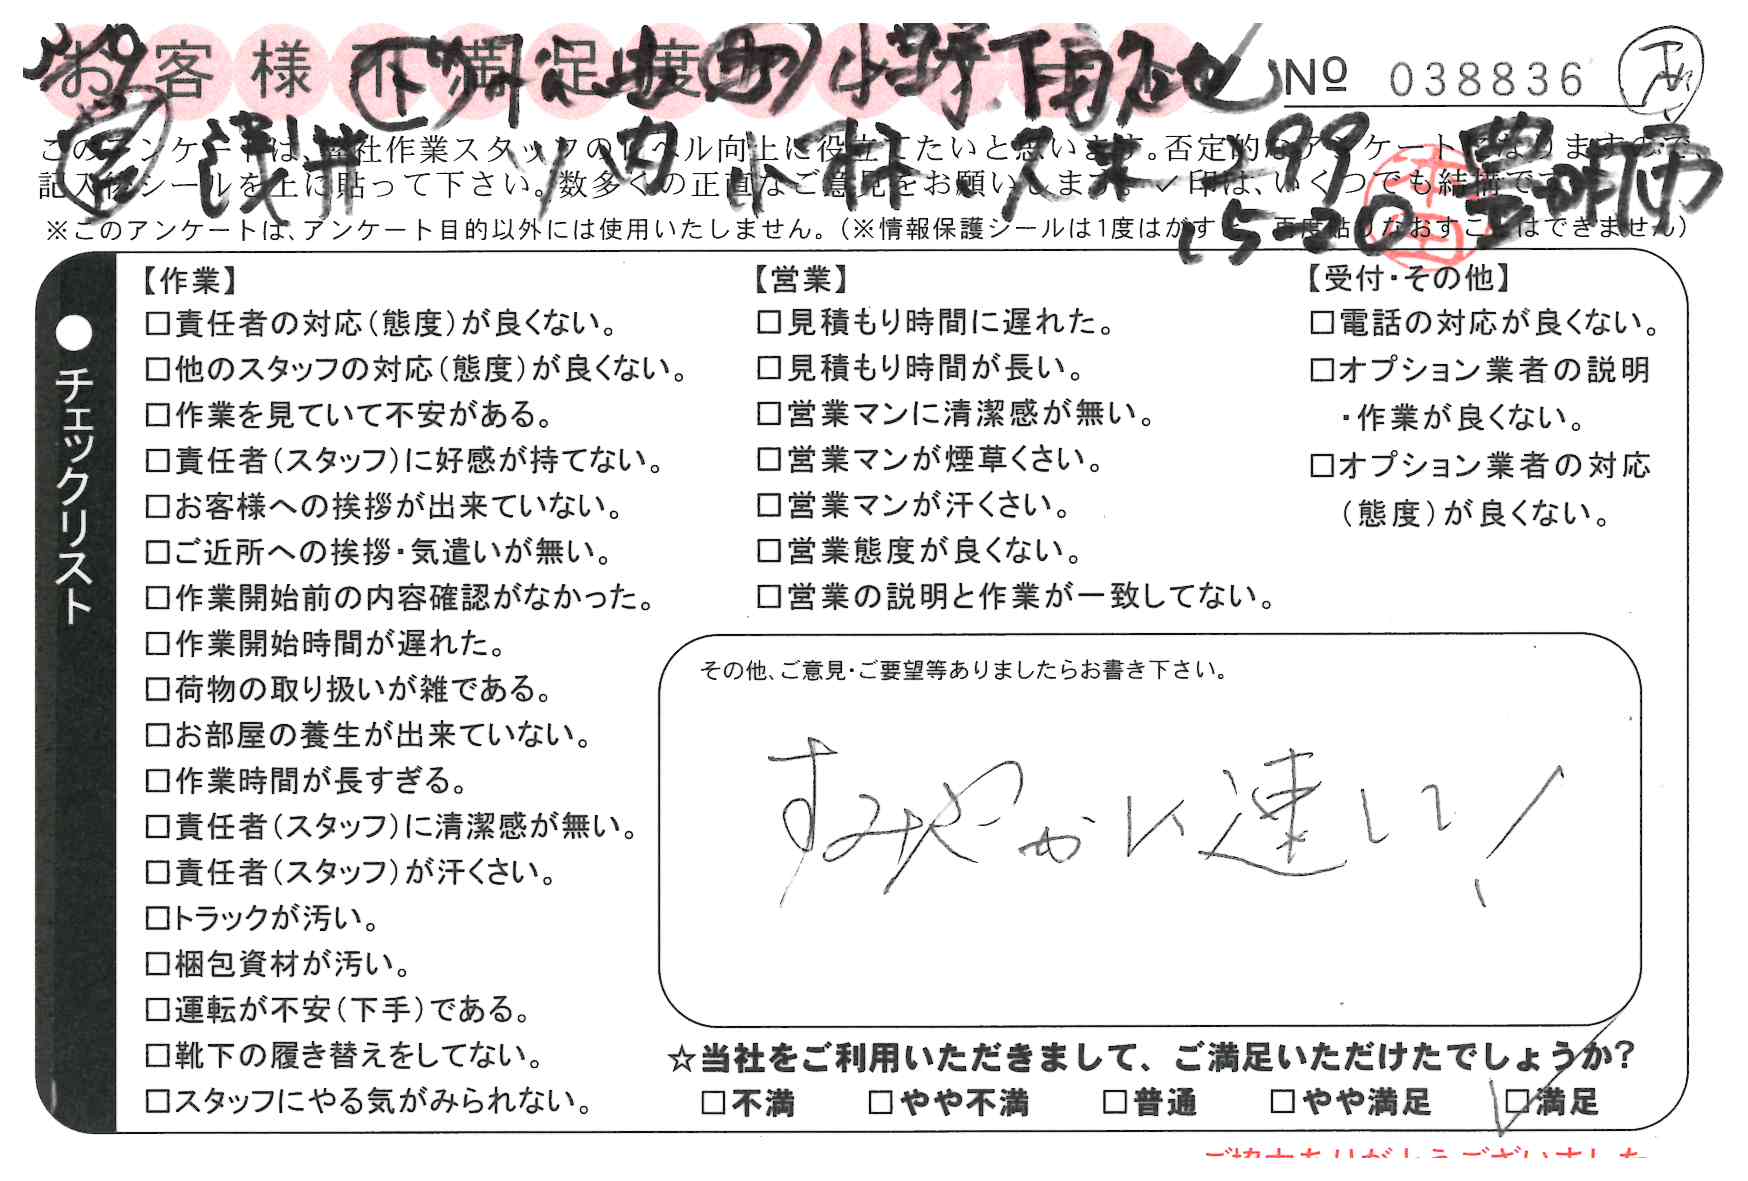 お客様不満足度
№ 038836
このアンケートは、当社作業スタッフのレベル向上に役立てたいと思います。否定的なアンケートになりますので、
記入後シールを上に貼って下さい。数多くの正直なご意見をお願いします。✓印は、いくつでも結構です。
※このアンケートは、アンケート目的以外には使用いたしません。(※情報保護シールは1度はがすと、再度貼りなおすことはできません)
15-20
●チェックリスト
【作業】
□責任者の対応(態度)が良くない。
□他のスタッフの対応(態度)が良くない。
□作業を見ていて不安がある。
□責任者(スタッフ)に好感が持てない。
□お客様への挨拶が出来ていない。
□ご近所への挨拶・気遣いが無い。
□作業開始前の内容確認がなかった。
□作業開始時間が遅れた。
□荷物の取り扱いが雑である。
□お部屋の養生が出来ていない。
□作業時間が長すぎる。
□責任者(スタッフ)に清潔感が無い。
□責任者(スタッフ)が汗くさい。
□トラックが汚い。
□梱包資材が汚い。
□運転が不安(下手)である。
□靴下の履き替えをしてない。
□スタッフにやる気がみられない。
【営業】
□見積もり時間に遅れた。
□見積もり時間が長い。
□営業マンに清潔感が無い。
□営業マンが煙草くさい。
□営業マンが汗くさい。
□営業態度が良くない。
□営業の説明と作業が一致してない。
【受付・その他】
□電話の対応が良くない。
□オプション業者の説明
・作業が良くない。
□オプション業者の対応
(態度)が良くない。
その他、ご意見・ご要望等ありましたらお書き下さい。
すみやかに速い!
☆当社をご利用いただきまして、ご満足いただけたでしょうか?
□不満 □やや不満 □普通 □やや満足 □満足
ご協力ありがとうございました